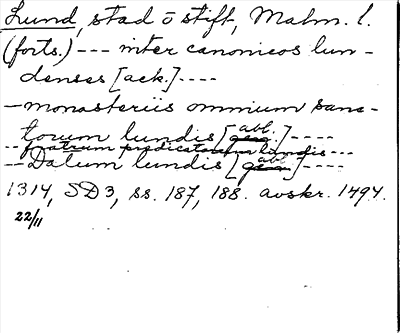 Lund, stad o stift, Malm. l.
(forts.) --- inter canonicos lun-
denses [ack.] ----
- monasteriis omnium sanc-
torum lundis [gen. abl.] ----
-- fratrum predicatorum lundis ---
-- Datum lundis [gen. abl.] ----
1314, SD3, ss. 187, 188. avskr. 1494.
22/11